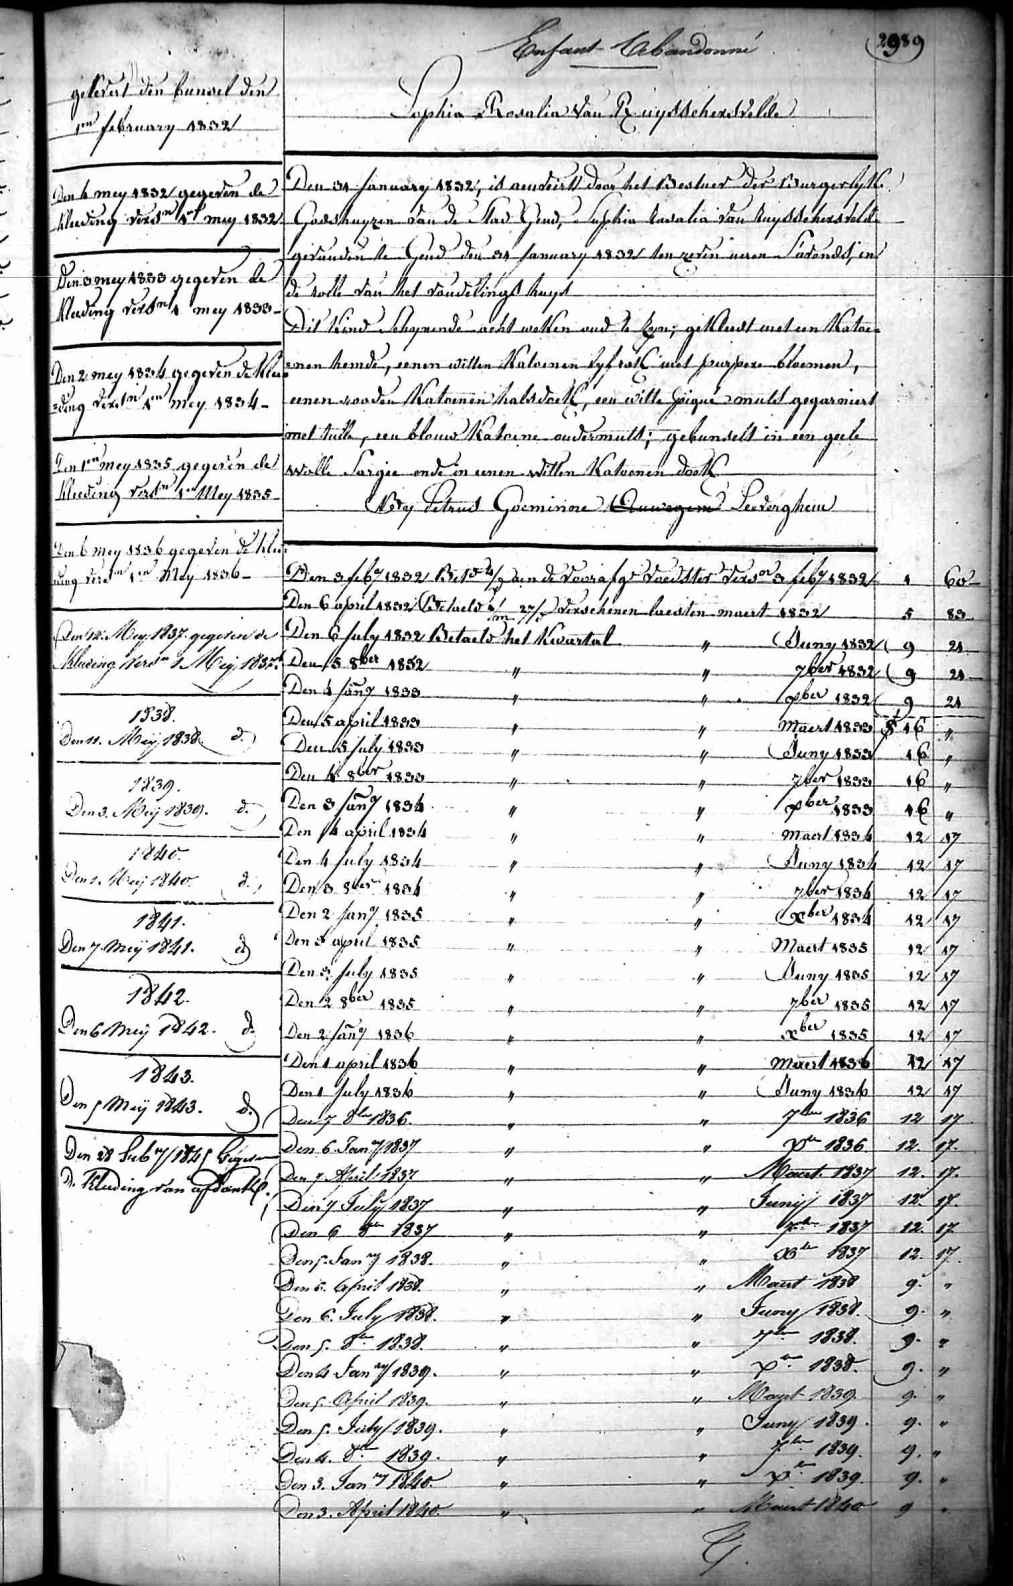 2989
Enfant Abandonné
Sophia Rosalia Van Ruysschersvelde
gelevert den bunsel den
1en february 1832
Den 4 mey 1832 gegeven de
kleeding versn 1n mey 1832
Den 3 mey 1833 gegeven de
kleeding versn 1 mey 1833
Den 2 mey 1834 gegeven de klee
ding versn 1en mey 1834
Den 1en mey 1835 gegeven de
kleeding versn 1en Mey 1835
Den 6 mey 1836 gegeven de klee
ding versn 1en Mey 1836
Den 12. Mey 1837 gegeven de
kleeding versn 1 Mey 1837.
1838.
Den 11. Meij 1838. d.
1839.
Den 3. Meij 1839. d.
1840.
Den 1. Meij 1840. d.
1841.
Den 7 Meij 1841. d.
1842.
Den 6 Meij 1842. d.
1843.
Den 5 Meij 1843. d.
Den 28 Feby 1845 Gegeven
De Kleeding van
Den 31 January 1832, is aenveirt door het Bestuer der Burgerlyke
Godshuyzen van de Stad Gend, Sophia Rosalia Van Ruysschersvelde
gevonden te Gend den 31 January 1832 ten zeven uren s'avonds, in
de rolle van het vondelingshuys
Dit kind schynende acht weken oud te zyn; gekleed met een katoe-
nen hemde, eenen witten katoenen lyfrok met purpere bloemen,
eenen rooden katoenen halsdoek, een witte piqué muts gegarniert
met tulle, een blouw katoene ondermuts; gebunselt in een geele
wolle sargie ende in eenen witten katoenen doek
Petrus Goeminne Leeverghem
Den 3 feby 1832 Bet aen de voorafge voedster versn 3 feby 1832 1 60
Den 6 april 1832 Betaeld verschenen laesten maert 1832 5 83
Den 6 July 1832 Betaeld het kwartal " Juny 1832 9 21
Den 5 8ber 1832 " " 7ber 1832 9 21
Den 4 Jany 1833 " " xber 1832 9 21
Den 5 april 1833 " " Maert 1833 16 "
Den 5 July 1833 " " Juny 1833 16 "
Den 4 8ber 1833 " " 7ber 1833 16 "
Den 3 Jany 1834 " " xber 1833 16 "
Den 4 april 1834 " " maert 1834 12 17
Den 4 July 1834 " " Juny 1834 12 17
Den 3 8ber 1834 " " 7ber 1834 12 17
Den 2 Jany 1835 " " xber 1834 12 17
Den 3 april 1835 " " Maert 1835 12 17
Den 3 July 1835 " " Juny 1835 12 17
Den 2 8ber 1835 " " 7ber 1835 12 17
Den 2 Jany 1836 " " xber 1835 12 17
Den 1 april 1836 " " maert 1836 12 17
Den 1 July 1836 " " Juny 1836 12 17
Den 7 8ber 1836. " " 7ber 1836 12 17
Den 6 Jany 1837 " " xber 1836 12. 17.
Den 7 April 1837 " " Maert 1837 12. 17.
Den 7 July 1837 " " Junij 1837 12. 17.
Den 6 8ber 1837 " " 7ber 1837 12. 17
Den 5. Jany 1838. " " xber 1837 12. 17.
Den 6. April 1838. " " Maert 1838 9. "
Den 6. July 1838. " " Juny 1838. 9. "
Den 5. 8ber 1838. " " 7ber 1838. 9. "
Den 4 Jany 1839. " " xber 1838. 9. "
Den 5. April 1839. " " Maert 1839. 9. "
Den 5. July 1839. " " Juny 1839. 9. "
Den 4. 8ber 1839. " " 7ber 1839. 9. "
Den 3. Jany 1840. " " xber 1839. 9. "
Den 3. April 1840. " " Maert 1840 9 "